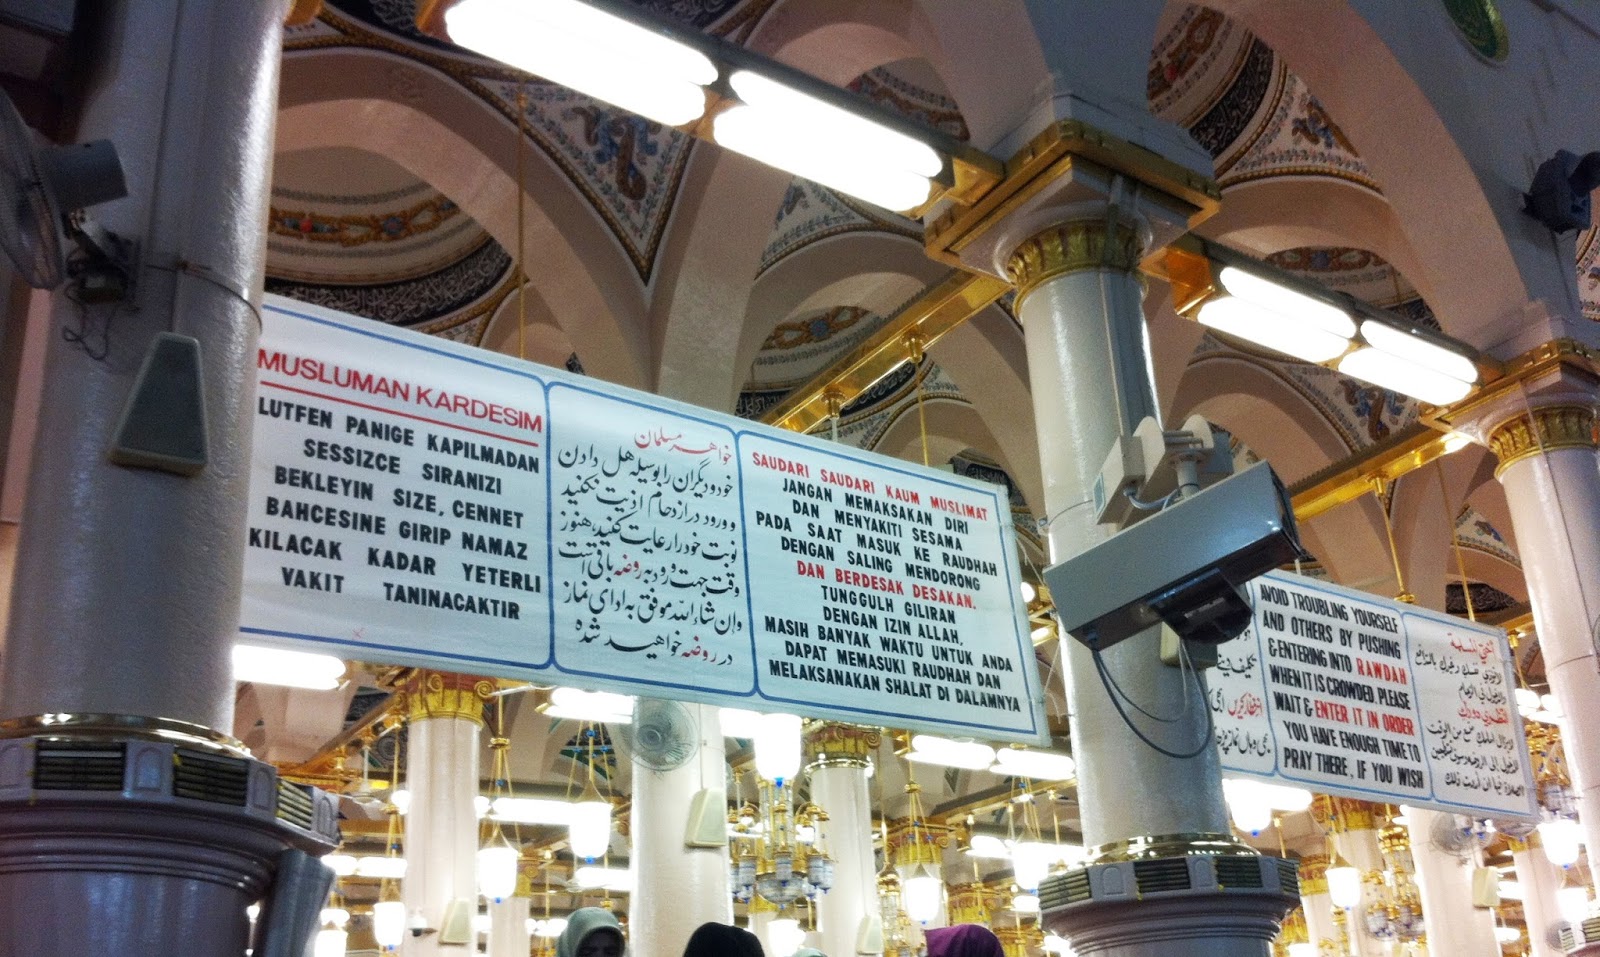 MUSLUMAN KARDESIM
LUTFEN PANIGE KAPILMADAN
SESSIZCE SIRANIZI
BEKLEYIN SIZE, CENNET
BAHCESINE GIRIP NAMAZ
KILACAK KADAR YETERLI
VAKIT TANINACAKTIR
خواهر مسلمان
خود و دیگران را بوسیله هل دادن
و ورود در ازدحام اذیت نکنید
نوبت خود را رعایت کنید، هنوز
وقت جهت ورود به روضه باقی است
و إن شاء الله موفق به ادای نماز
در روضه خواهید شد
SAUDARI SAUDARI KAUM MUSLIMAT
JANGAN MEMAKSAKAN DIRI
DAN MENYAKITI SESAMA
PADA SAAT MASUK KE RAUDHAH
DENGAN SALING MENDORONG
DAN BERDESAK DESAKAN.
TUNGGULH GILIRAN
DENGAN IZIN ALLAH,
MASIH BANYAK WAKTU UNTUK ANDA
DAPAT MEMASUKI RAUDHAH DAN
MELAKSANAKAN SHALAT DI DALAMNYA
AVOID TROUBLING YOURSELF
AND OTHERS BY PUSHING
& ENTERING INTO RAWDAH
WHEN IT IS CROWDED. PLEASE
WAIT & ENTER IT IN ORDER
YOU HAVE ENOUGH TIME TO
PRAY THERE, IF YOU WISH
أختي المسلمة
لا تؤذي نفسك وغيرك بالتدافع
والدخول في الزحام
انتظري دورك
لا يزال أمامك متسع من الوقت
الصلاة فيها إن أردت ذلك